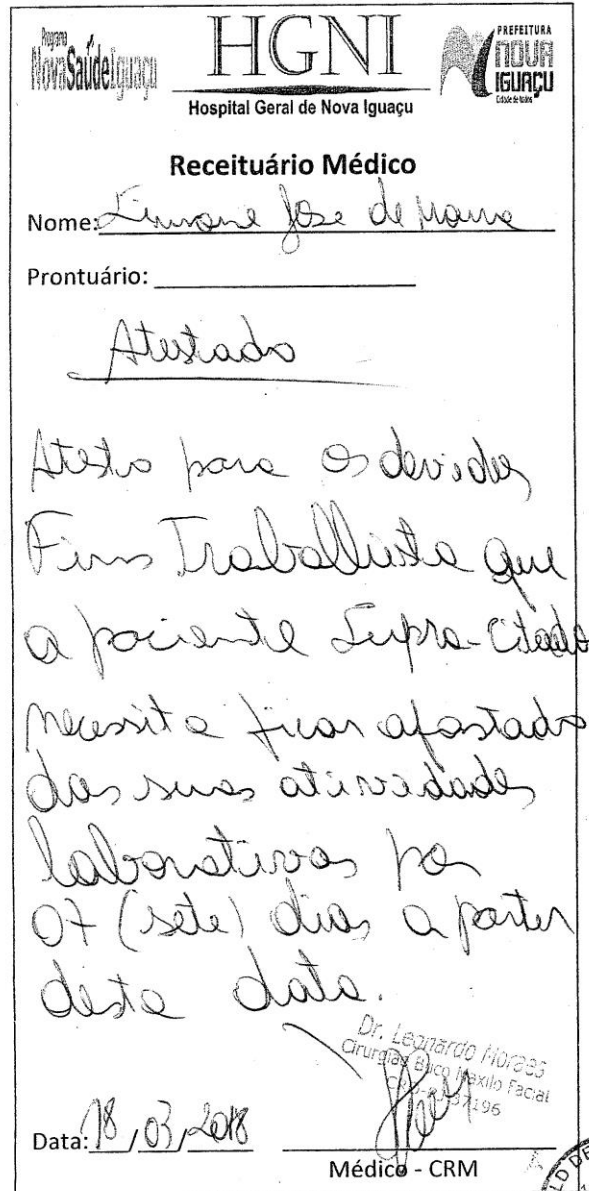 Programa
NovaSaúdeIguaçu
HGNI
Hospital Geral de Nova Iguaçu
PREFEITURA
NOVA
IGUAÇU
Cidade de todos
Receituário Médico
Nome: Jose de
Prontuário:
Atestado
Atesto para os devidos
Fins Trabalhista que
a paciente Supra-Citado
necessita ficar afastado
das suas atividades
laborativas por
07 (sete) dias a partir
desta data.
Dr. Leonardo Moraes
Cirurgião Buco Maxilo Facial
37196
Data: 18/03/2018
Médico - CRM